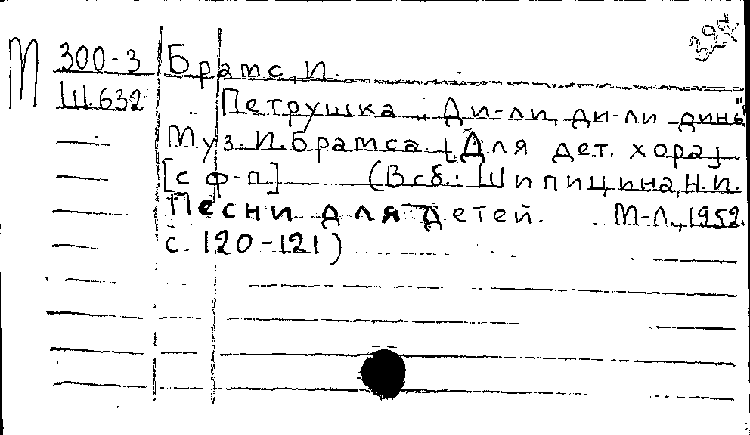 М 300-3 Брамс, И.
Ш.632 Петрушка „Ди-ли, ди-ли динь"
Муз. И. Брамса [Для дет. хора]
[с ф-п] (В сб: Шипицина, Н.И.
Песни для детей. М-Л., 1952.
с. 120-121)